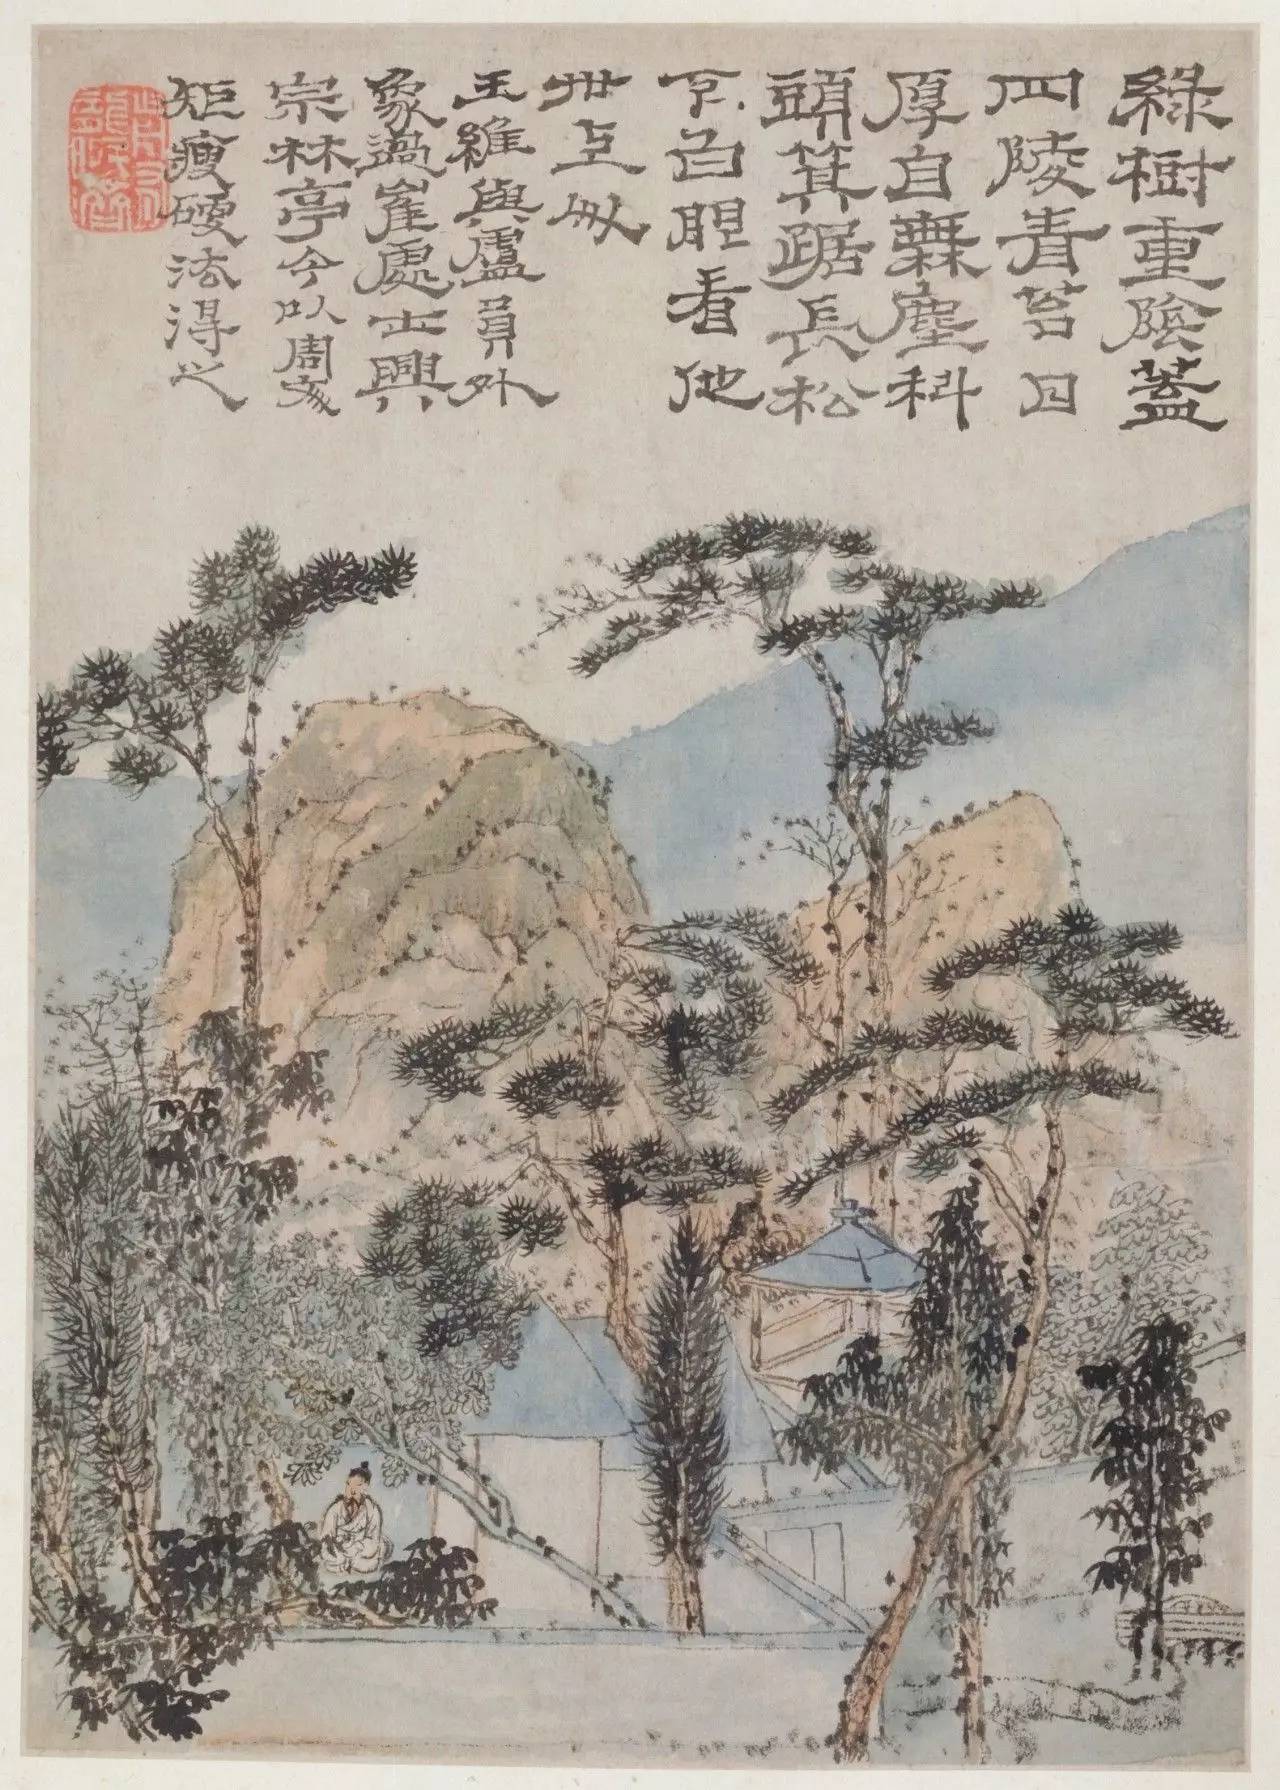 綠樹重陰蓋
四陵青苔日
厚自無塵科
頭箕踞長松
下白眼看他
世
王維與盧員外
象過崔處士興
宗林亭今以周文
矩瘦硬法得之
前有龍眠濟